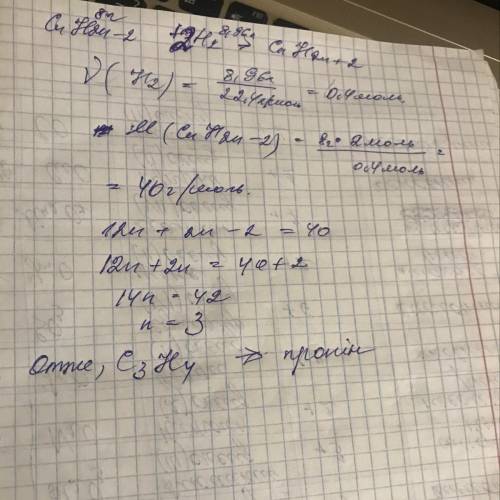 8г 8,96л
CnH2n-2 + 2H2 → CnH2n+2
ν(H2) = 8,96л / 22,4л/моль = 0,4 моль.
M(CnH2n-2) = 8г · 2моль / 0,4 моль =
= 40г/моль.
12n + 2n - 2 = 40
12n + 2n = 40 + 2
14n = 42
n = 3
Отже, C3H4 → пропін